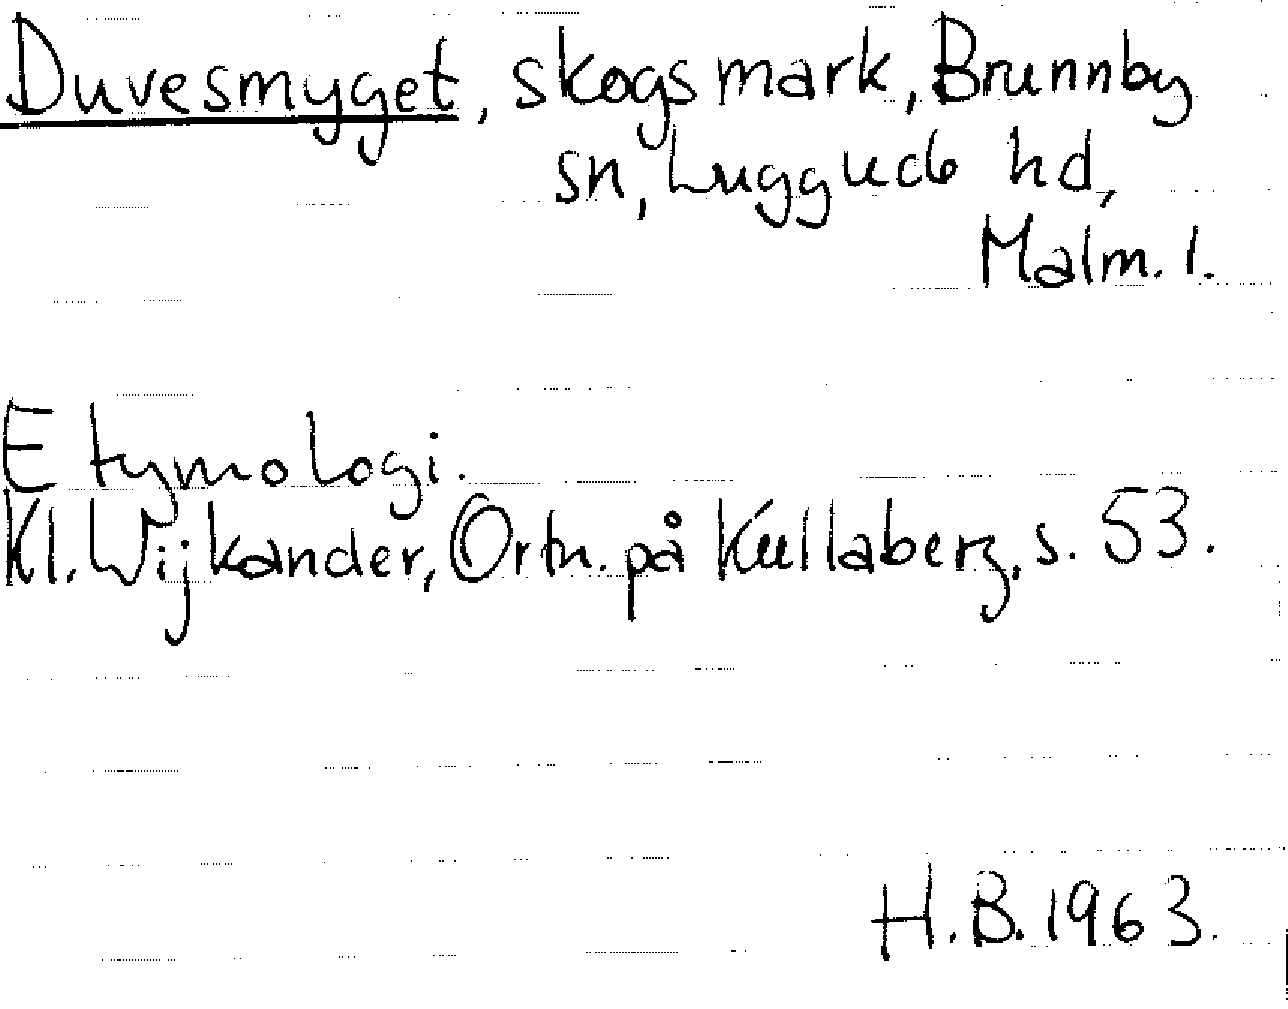 Duvesmyget, skogsmark, Brunnby
sn, Luggude hd,
Malm. l.
Etymologi.
Kl. Wijkander, Ortn. på Kullaberg, s. 53.
H.B. 1963.